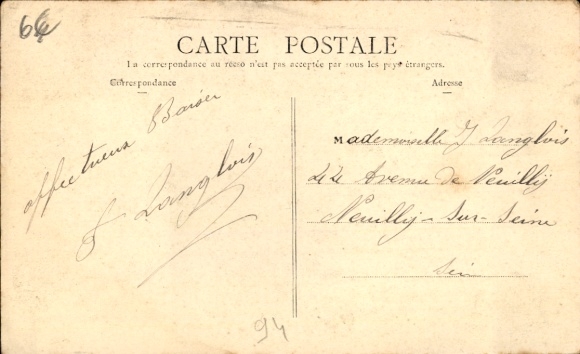 6€
CARTE POSTALE
La correspondance au recto n'est pas acceptée par tous les pays étrangers.
Correspondance
Adresse
affectueux Baiser
J Langlois
Mademoiselle J Langlois
44 Avenue de Neuilly
Neuilly-sur-Seine
94